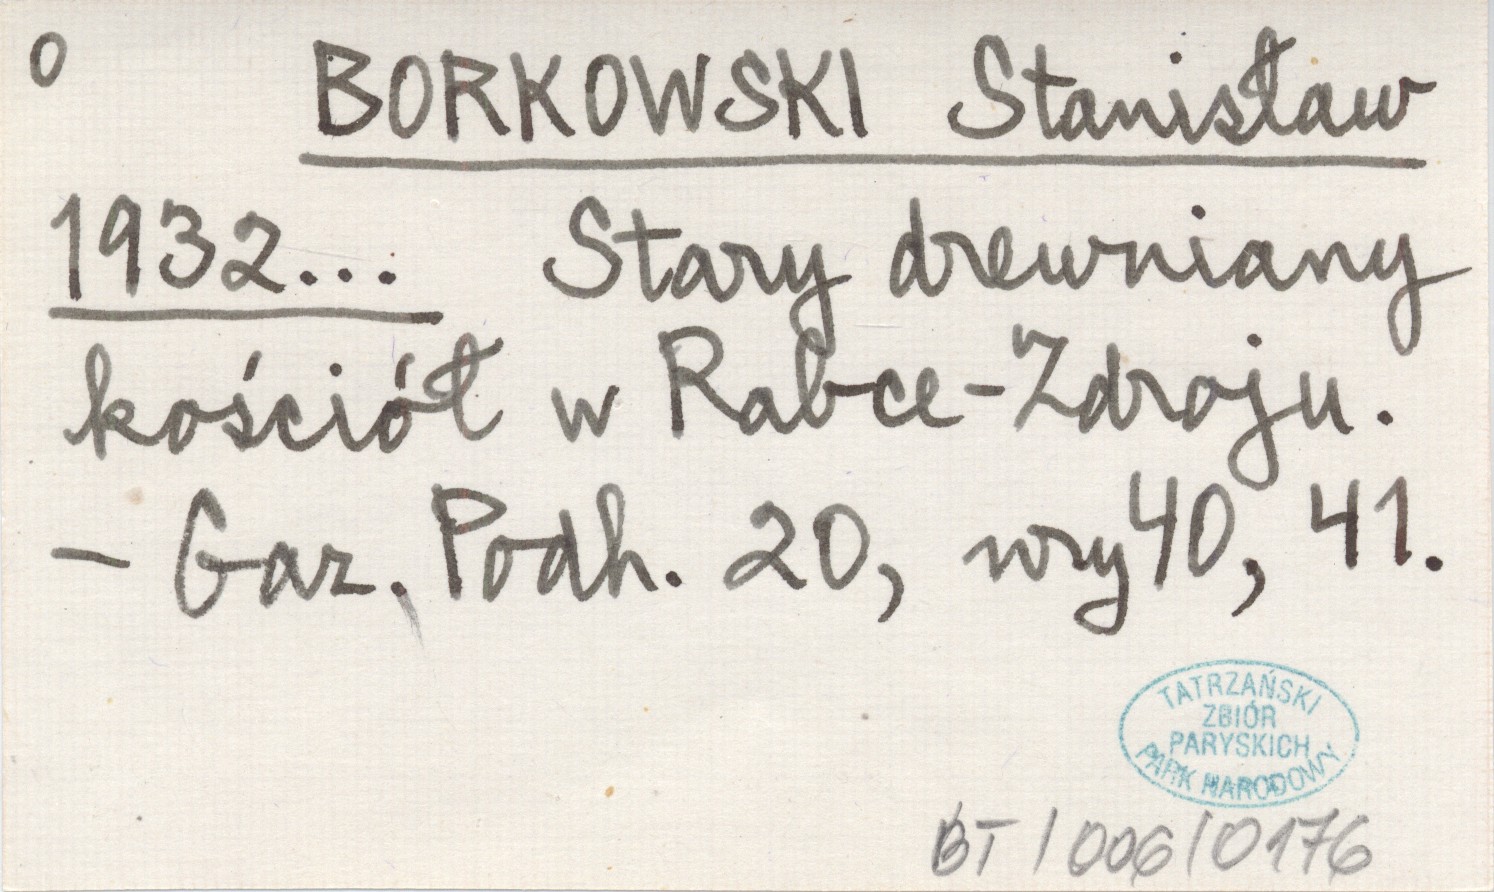 o BORKOWSKI Stanisław
1932... Stary drewniany
kościół w Rabce-Zdroju.
- Gaz. Podh. 20, nry 40, 41.
TATRZAŃSKI
ZBIÓR
PARYSKICH
PARK NARODOWY
BT/006/0176